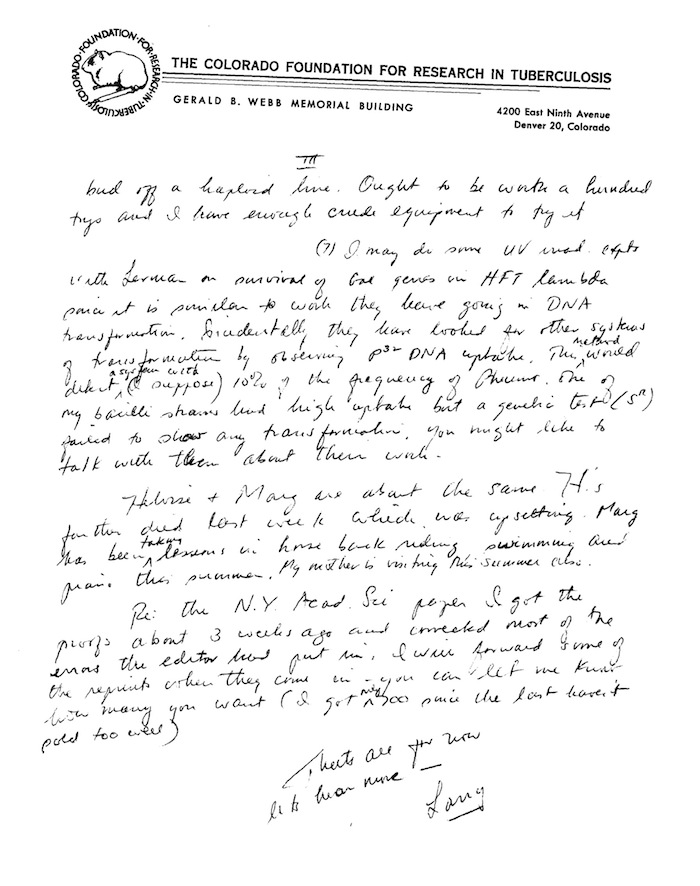 COLORADO·FOUNDATION·FOR·RESEARCH·IN·TUBERCULOSIS
THE COLORADO FOUNDATION FOR RESEARCH IN TUBERCULOSIS
GERALD B. WEBB MEMORIAL BUILDING
4200 East Ninth Avenue
Denver 20, Colorado
III
bud off a haploid line. Ought to be worth a hundred
trys and I have enough crude equipment to try it
(7) I may do some UV irrad. expts
with Lerman on survival of Gal genes in HFT lambda
since it is similar to work they have going in DNA
transformation. Incidentally they have looked for other systems
of transformation by observing P32 DNA uptake. This method would
detect a system with (I suppose) 10% of the frequency of Pneumo. One of
my bacilli strains had high uptake but a genetic test (SR)
failed to show any transformation. You might like to
talk with them about their work.
& Marg are about the same H's
father died last week which was upsetting. Marg
has been taking lessons in horse back riding, swimming and
piano this summer. My mother is visiting this summer also.
Re: the N.Y. Acad. Sci paper I got the
proofs about 3 weeks ago and corrected most of the
errors the editor had put in. I will forward some of
the reprints when they come in - you can let me know
how many you want (I got only 300 since the last haven't
sold too well)
Thats all for now
lets hear more —
Larry